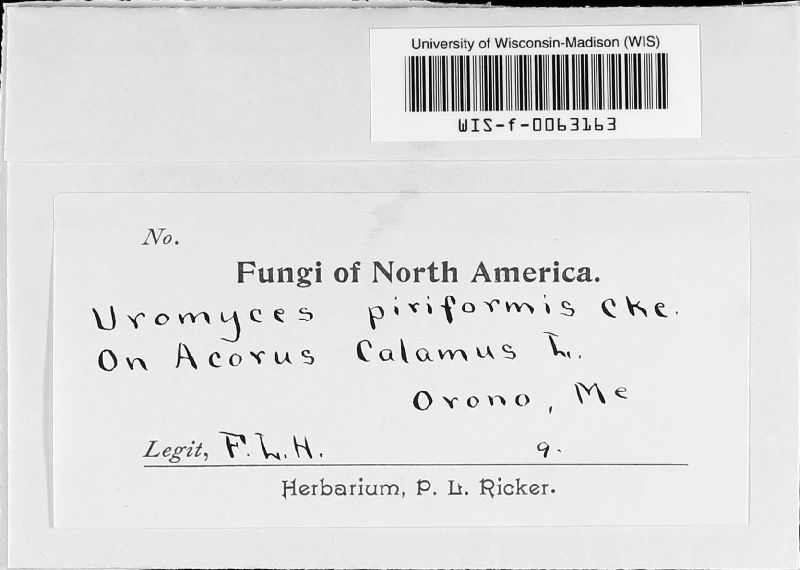 University of Wisconsin-Madison (WIS)
WIS-f-0063163
No.
Fungi of North America.
Uromyces piriformis Cke.
On Acorus Calamus L.
Orono, Me
Legit, F. L. H. 9.
Herbarium, P. L. Ricker.